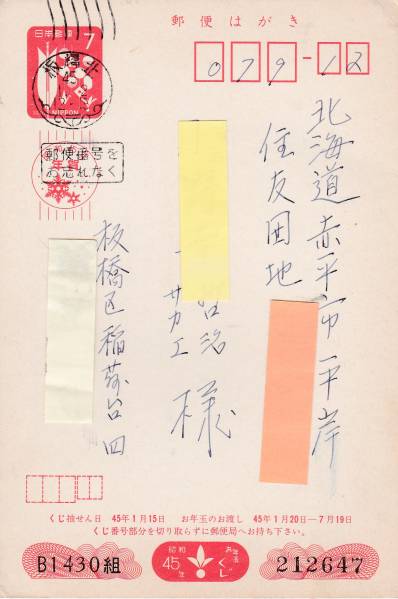 郵便はがき
日本郵便 7
NIPPON
板橋北
45
079-12
年賀
郵便番号を
お忘れなく
北海道赤平市平岸
住友団地
治
サカエ 様
板橋区稲荷台四
くじ抽せん日 45年1月15日 お年玉のお渡し 45年1月20日―7月19日
くじ番号部分を切り取らずに郵便局へお持ち下さい。
B1430組
昭和
45年
お年玉
くじ
212647